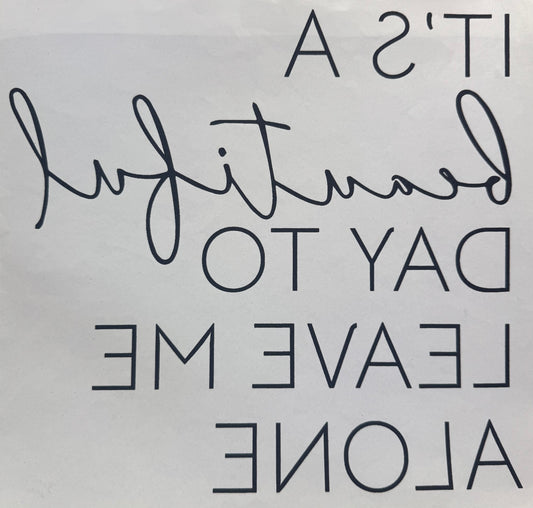 IT'S A
beautiful
DAY TO
LEAVE ME
ALONE